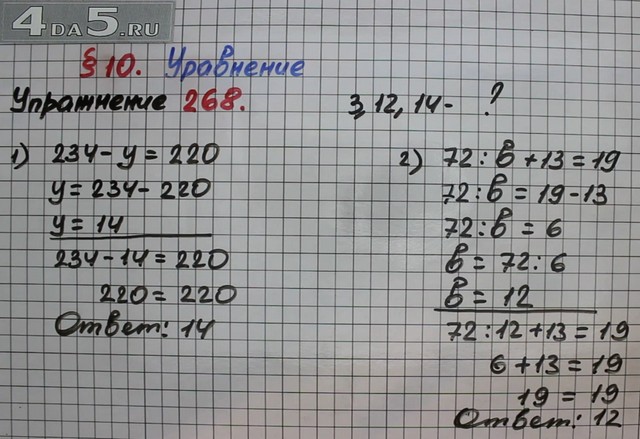 4DA5.RU
§ 10. Уравнение
Упражнение 268.
3, 12, 14 - ?
1) 234 - y = 220
y = 234 - 220
y = 14
234 - 14 = 220
220 = 220
Ответ: 14
2) 72 : в + 13 = 19
72 : в = 19 - 13
72 : в = 6
в = 72 : 6
в = 12
72 : 12 + 13 = 19
6 + 13 = 19
19 = 19
Ответ: 12